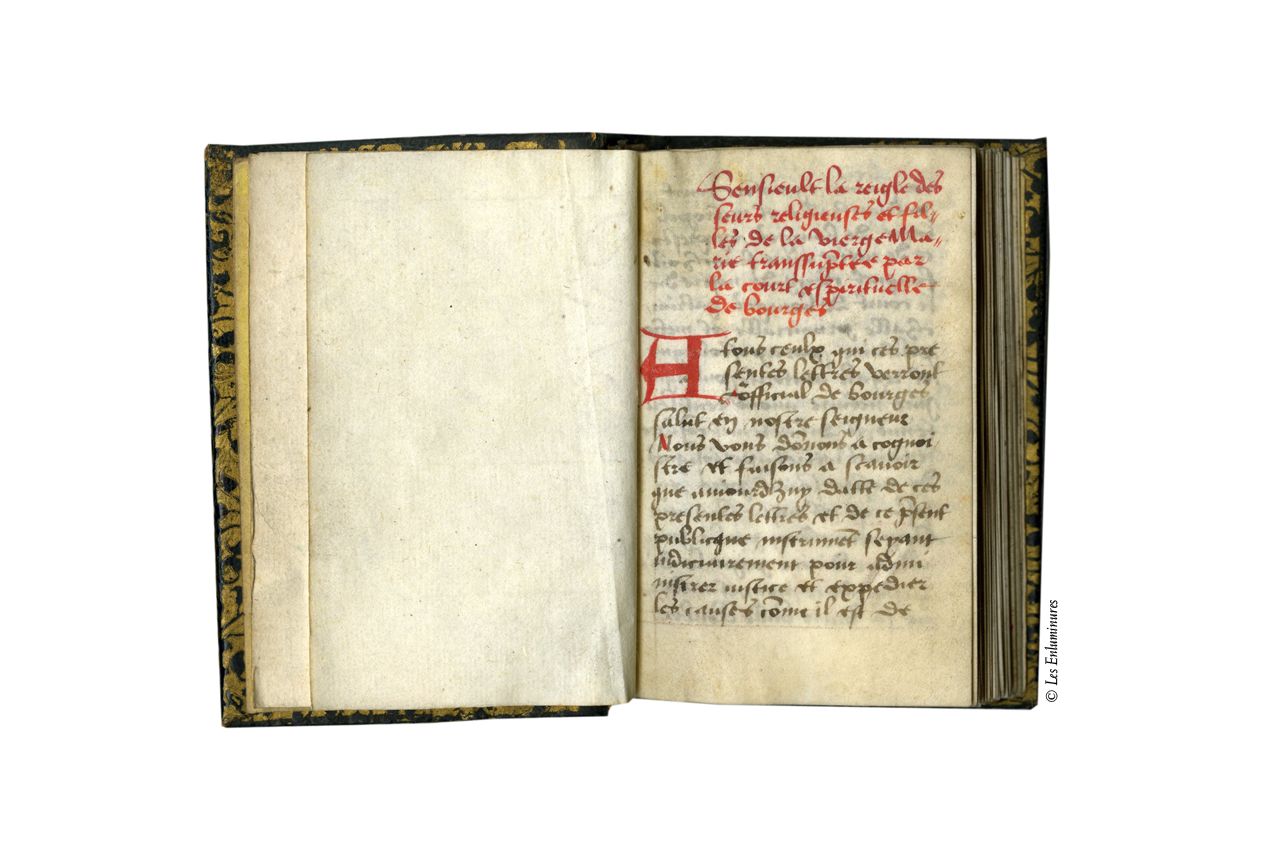 Sensieult la reigle des
seurs religieuses et fil„
les de la vierge Ma„
rie transsuptee par
la court espirituelle
de bourges
A tous ceulx qui ces pre
sentes lettres verront
official de bourges
salut en nostre seigneur
Nous vous donons a cognoi
stre et faisons a scavoir
que aujourdhuy datte de ces
presentes lettres et de ce psent
publicque instrument seyant
iudiciairement pour admi
nistrer iustice et expedier
les causes come il est de
© Les Enluminures